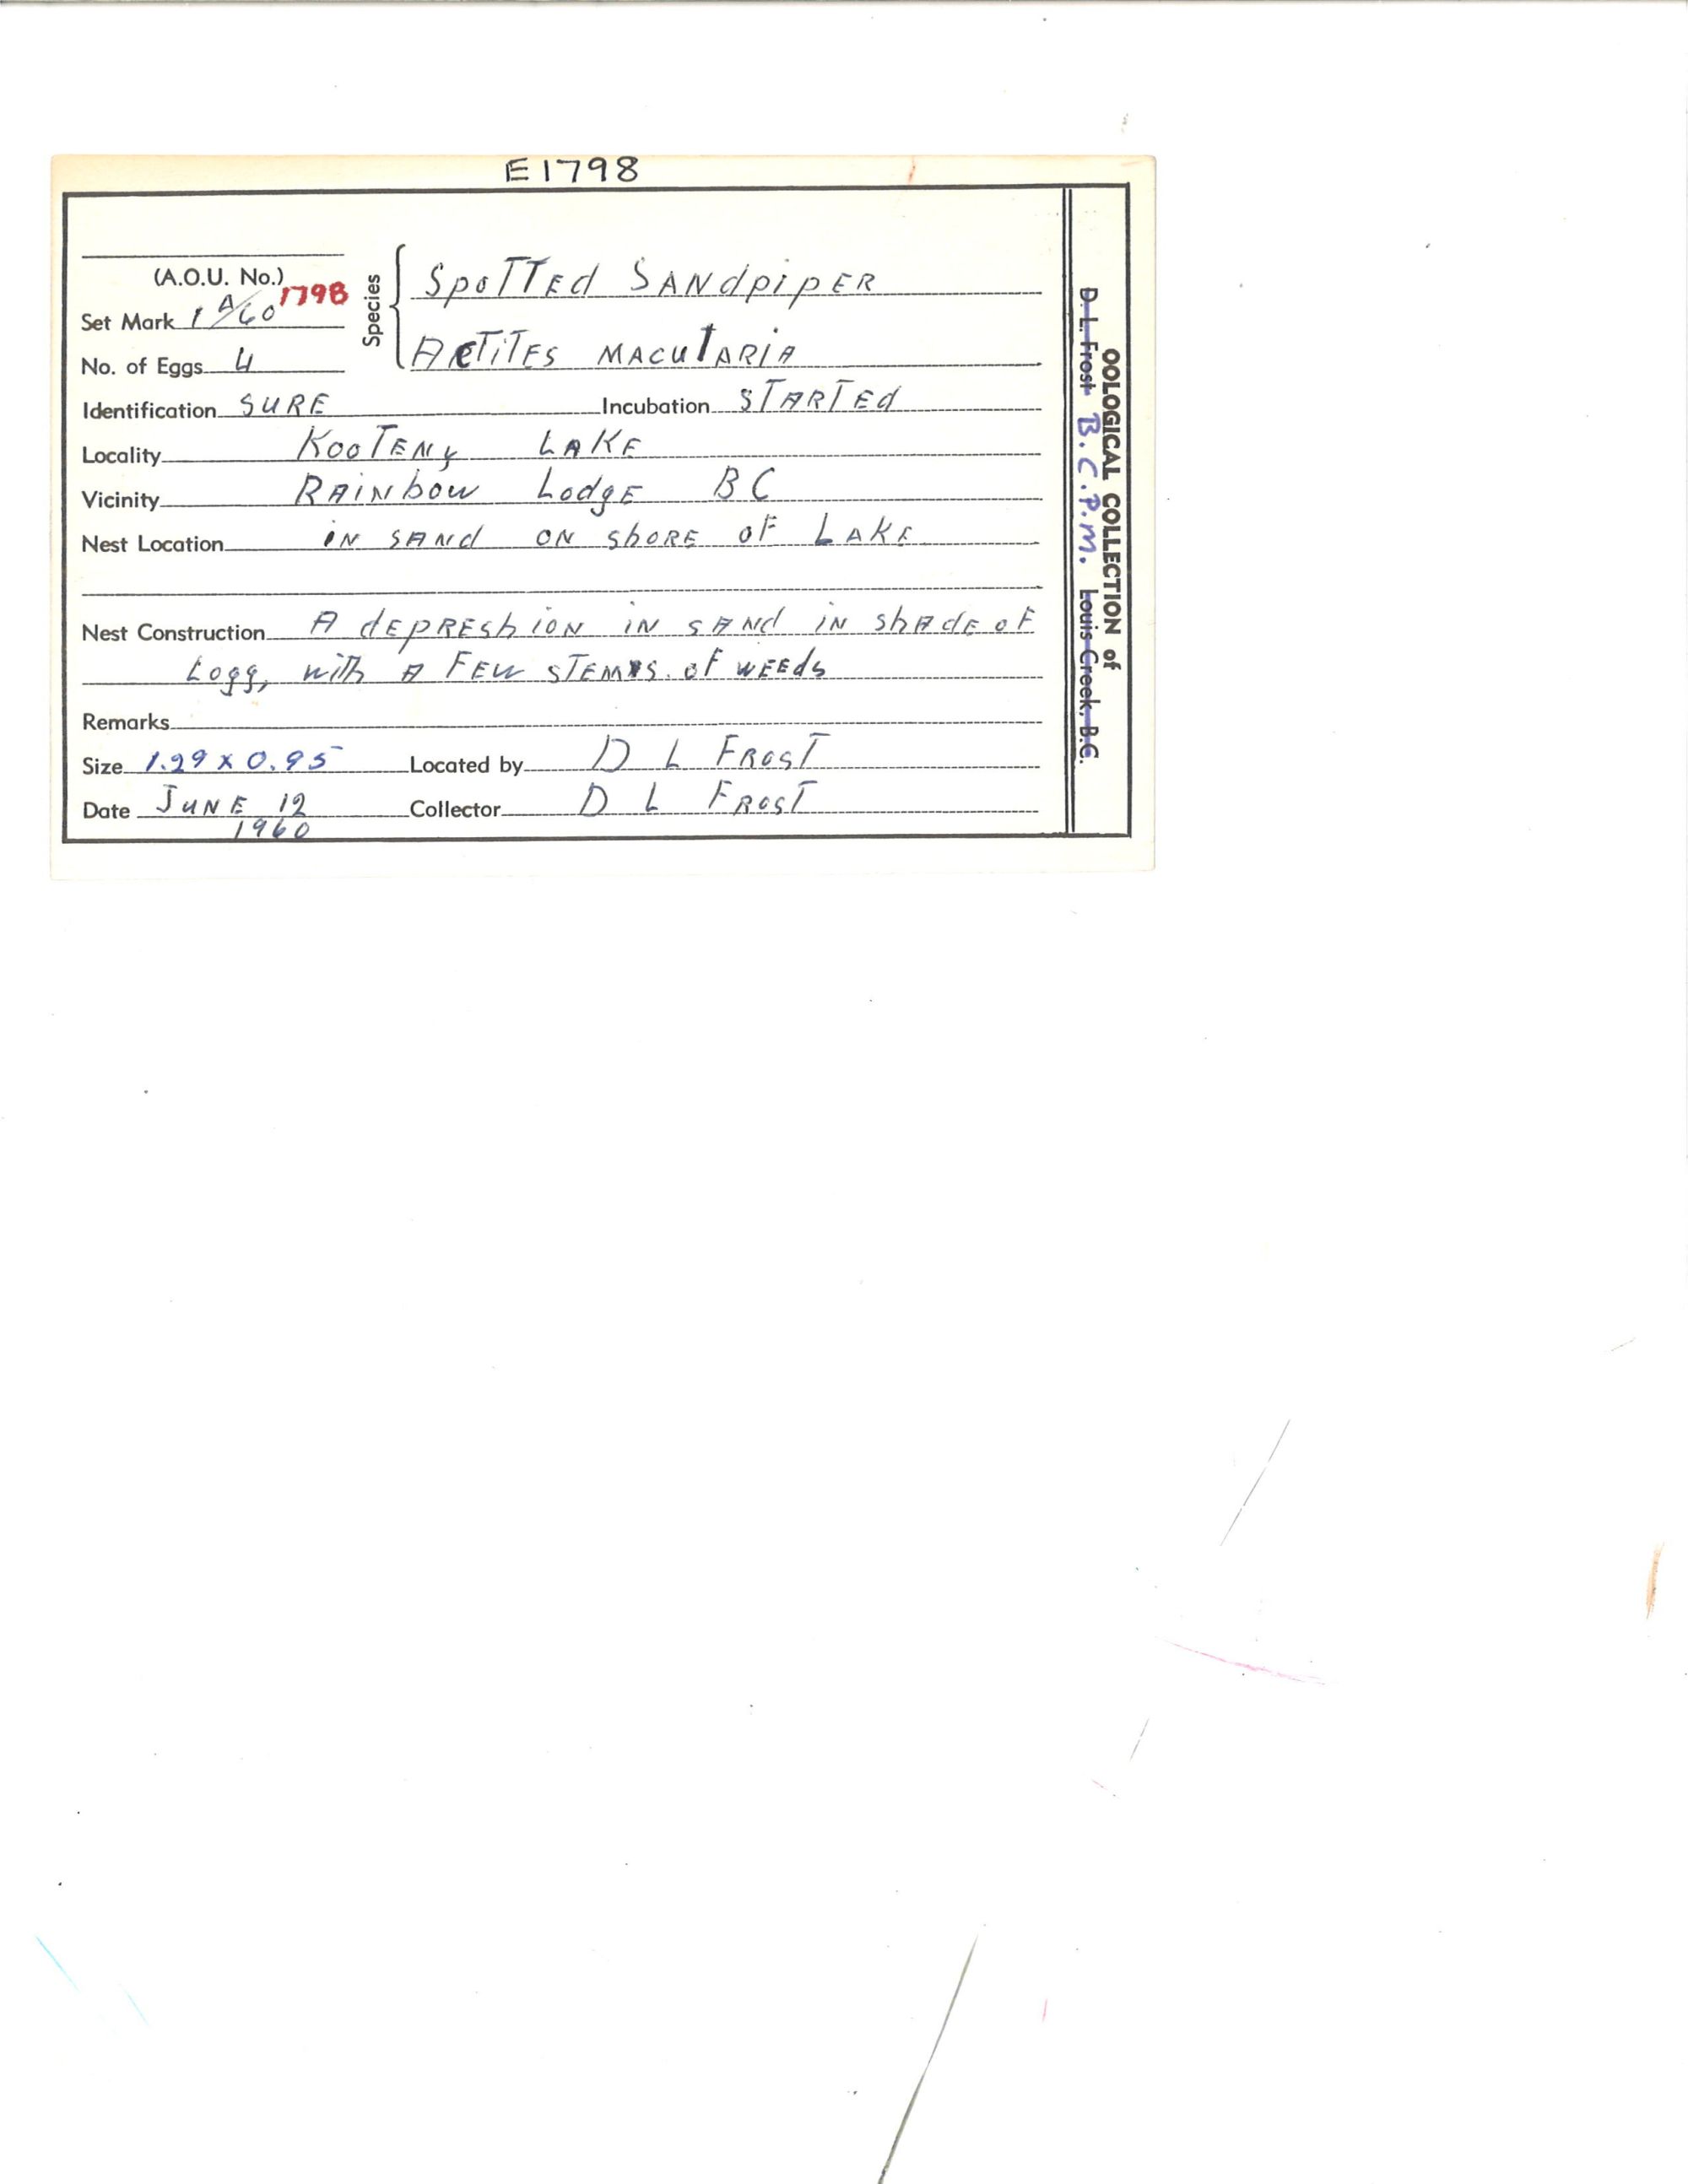 E1798
(A.O.U. No.) 1798
Set Mark 1 A/60
No. of Eggs 4
Species
SpoTTEd SANdpipER
ACTiTES MACulARIA
Identification SURE Incubation STARTEd
Locality KooTENy LAKE
Vicinity RAiNbow LodgE BC
Nest Location iN SANd ON shoRE oF LAKE
Nest Construction A dEpREshioN iN SANd iN shAdE oF
Logg, with A FEW STEMS of WEEds
Remarks
Size 1.29 x 0.95 Located by D L FRosT
Date JUNE 12 Collector D L FRosT
1960
OOLOGICAL COLLECTION of
D. L. Frost B.C.P.M. Louis Creek, B.C.